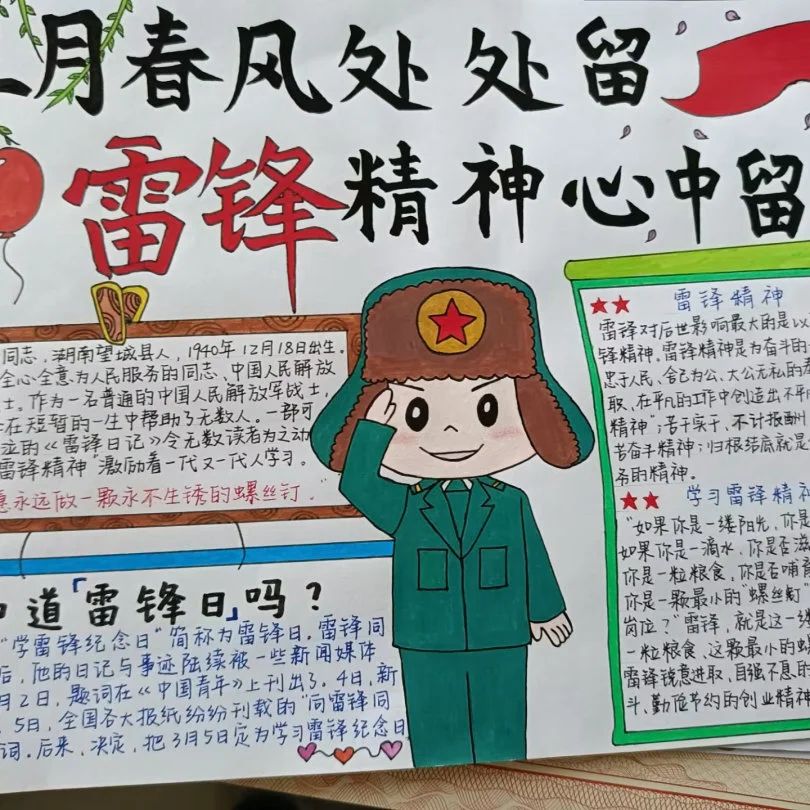 月春风处处留
雷锋精神心中留
同志，湖南望城县人，1940年12月18日出生。
全心全意为人民服务的同志、中国人民解放
士。作为一名普通的中国人民解放军战士，
在短暂的一生中帮助了无数人。一部可
泣的《雷锋日记》令无数读者为之动
雷锋精神"激励着一代又一代人学习。
愿永远做一颗永不生锈的螺丝钉。"
道「雷锋日」吗？
"学雷锋纪念日"简称为雷锋日。雷锋同
后，他的日记与事迹陆续被一些新闻媒体
月2日，题词在《中国青年》上刊出了。4日，新
5日，全国各大报纸纷纷刊载的"向雷锋同
词。后来，决定，把3月5日定为学习雷锋纪念日
雷锋精神
雷锋对后世影响最大的是以
锋精神。雷锋精神是为奋斗的
忠于人民、舍己为公、大公无私的
取、在平凡的工作中创造出不平
精神"；苦干实干、不计报酬
苦奋斗精神；归根结底就是
务的精神。
学习雷锋精神
"如果你是一缕阳光，你是
如果你是一滴水，你是否滋
你是一粒粮食，你是否哺育
你是一颗最小的"螺丝钉"
岗位？"雷锋，就是这一缕
一粒粮食、这颗最小的螺
雷锋锐意进取、自强不息的
斗、勤俭节约的创业精神